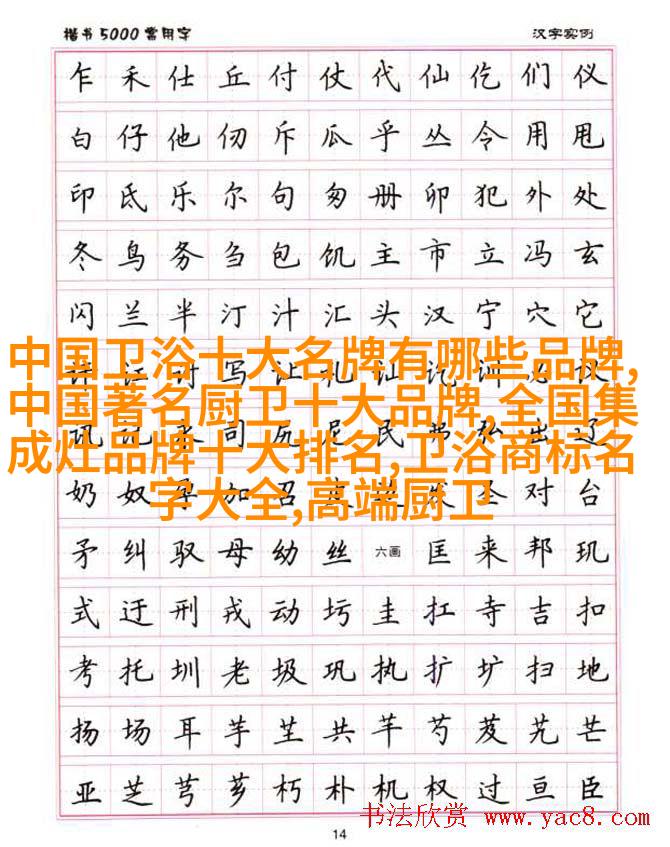 楷书5000常用字 汉字实例
乍禾仕丘付仗代仙仡们仪
白仔他仞斥瓜乎丛令用甩
印氐乐尔句匆册卯犯外处
冬鸟务刍包饥主市立冯玄
闪兰半汀汁汇头汉宁穴它
中国卫浴十大名牌有哪些品牌,
中国著名厨卫十大品牌,全国集
成灶品牌十大排名,卫浴商标名
字大全,高端厨卫
奶奴加召对台
矛纠驭母幼丝六画匡来邦玑
式迂刑戎动圬圭扛寺吉扣
考托圳老圾巩执扩圹扫地
扬场耳芋芏共芊芍芨芄芒
亚芝芎芗朽朴机权过亘臣
书法欣赏 www.yac8.com
14